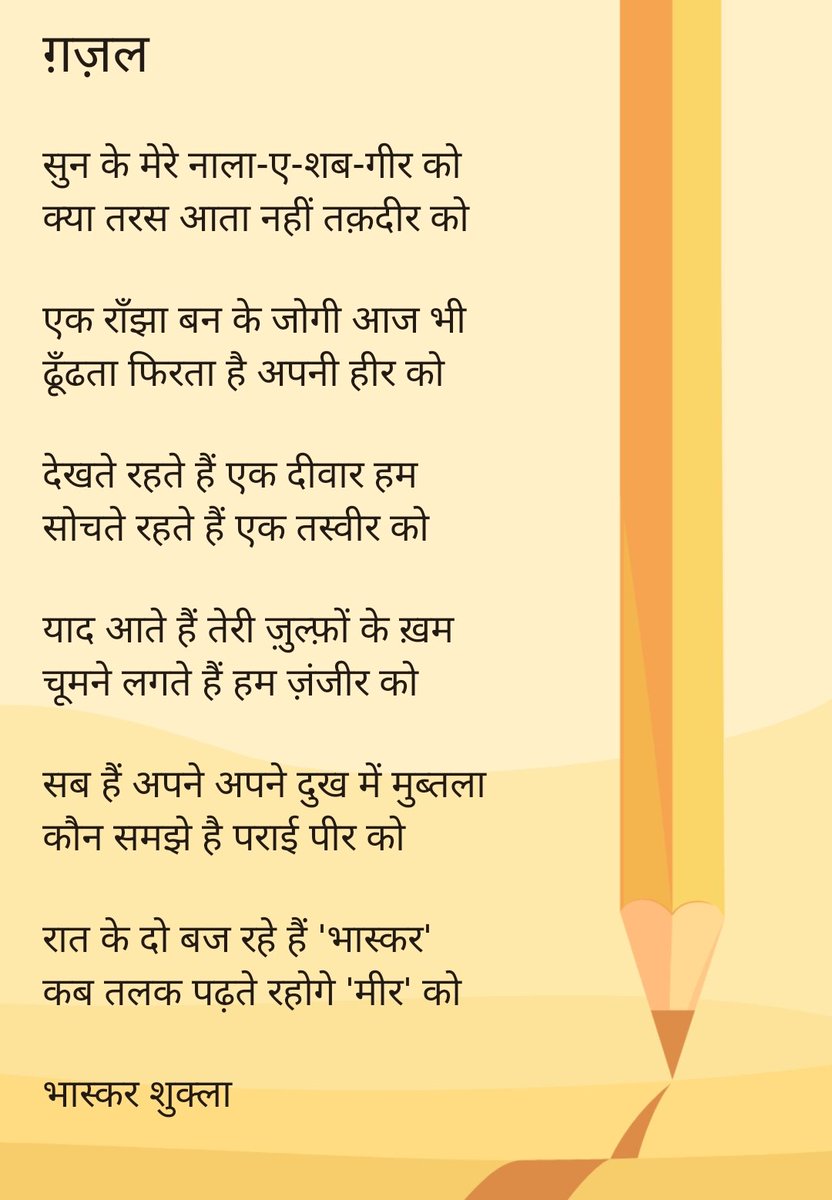 ग़ज़ल
सुन के मेरे नाला-ए-शब-गीर को
क्या तरस आता नहीं तक़दीर को
एक राँझा बन के जोगी आज भी
ढूँढता फिरता है अपनी हीर को
देखते रहते हैं एक दीवार हम
सोचते रहते हैं एक तस्वीर को
याद आते हैं तेरी ज़ुल्फ़ों के ख़म
चूमने लगते हैं हम ज़ंजीर को
सब हैं अपने अपने दुख में मुब्तला
कौन समझे है पराई पीर को
रात के दो बज रहे हैं 'भास्कर'
कब तलक पढ़ते रहोगे 'मीर' को
भास्कर शुक्ला